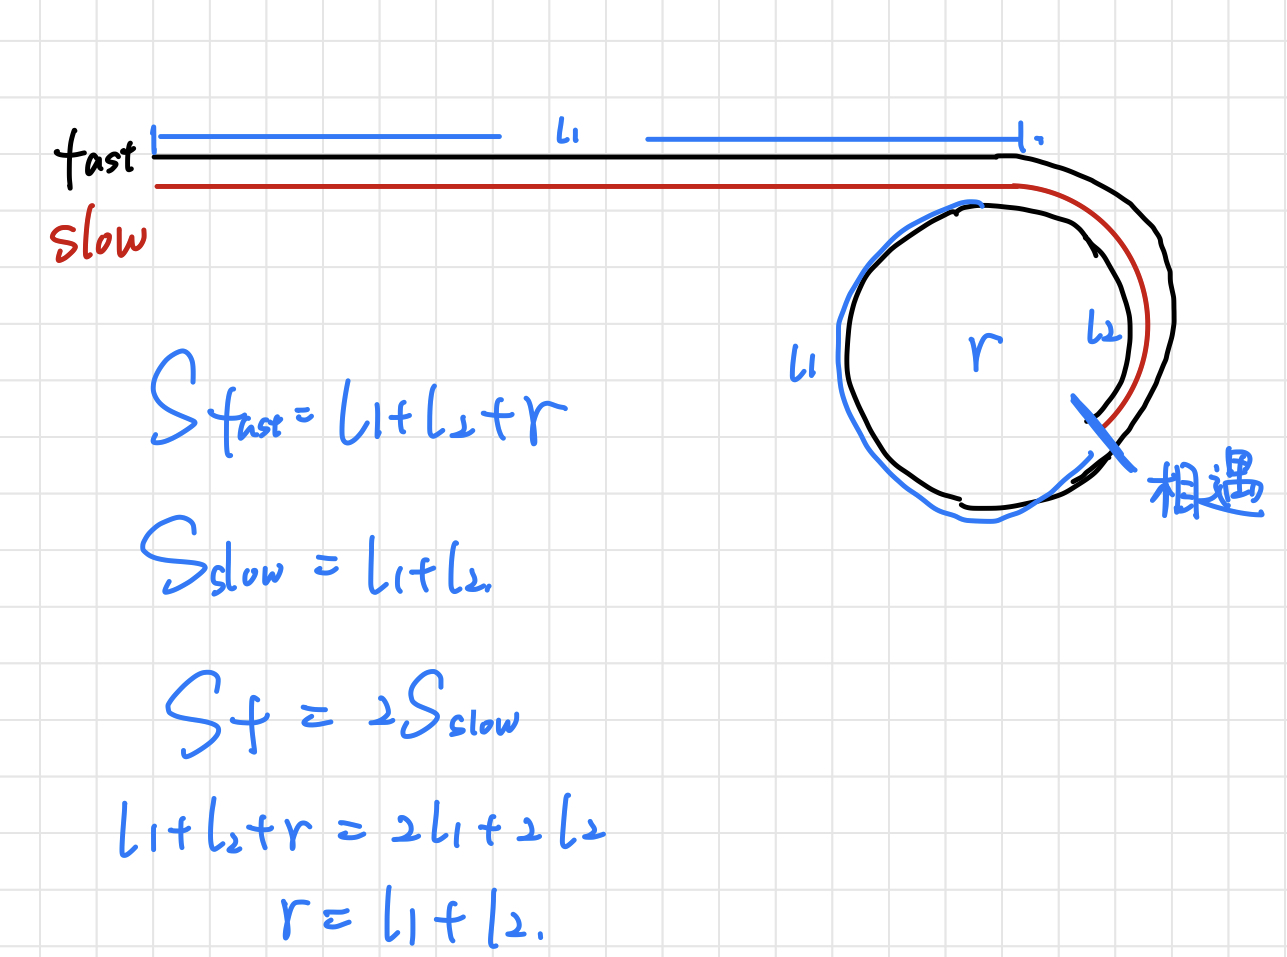 L1
fast
slow
L1
r
L2
相遇
Sfast = L1+L2+r
Sslow = L1+L2.
Sf = 2Sslow
L1+L2+r = 2L1+2L2
r = L1+L2.